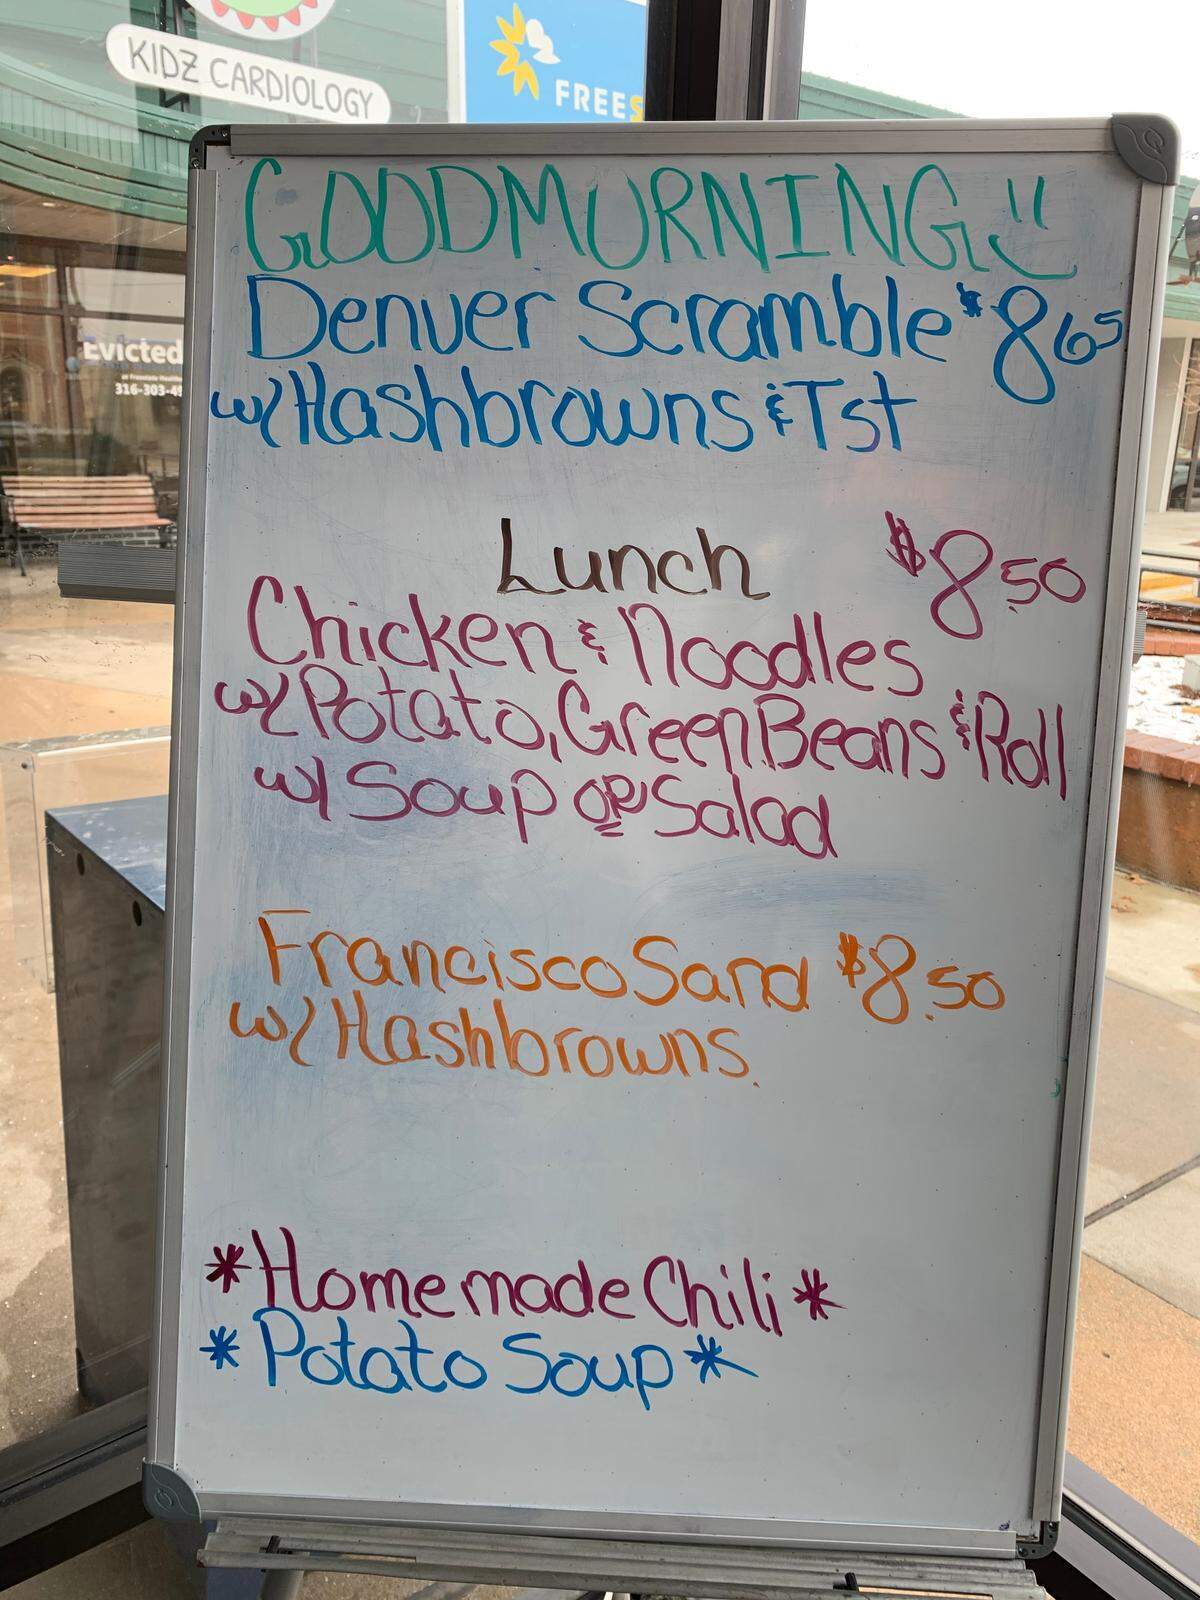 KIDZ CARDIOLOGY
FREES
Evicted
316-303-49
GOODMORNING
Denver Scramble $8.65
w/ Hashbrowns & Tst
Lunch $8.50
Chicken & Noodles
w/ Potato, Green Beans & Roll
w/ Soup or Salad
Francisco Sand $8.50
w/ Hashbrowns.
*Homemade Chili*
*Potato Soup*